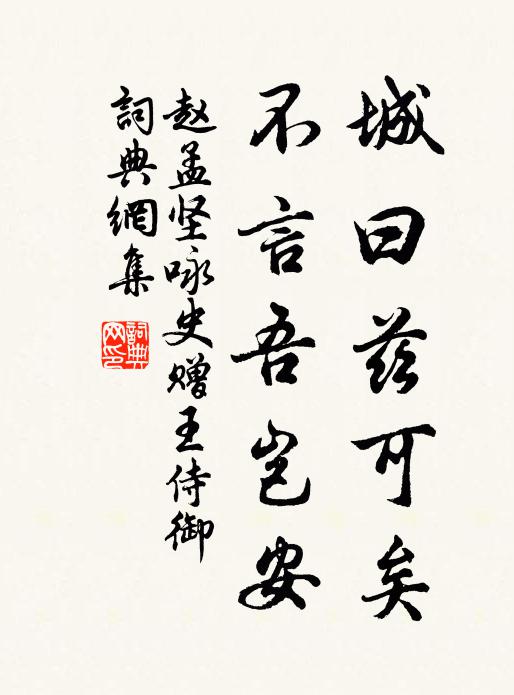 城曰兹可矣
不言吾岂安
赵孟坚咏史赠王侍御
詞典網集
詞典网印